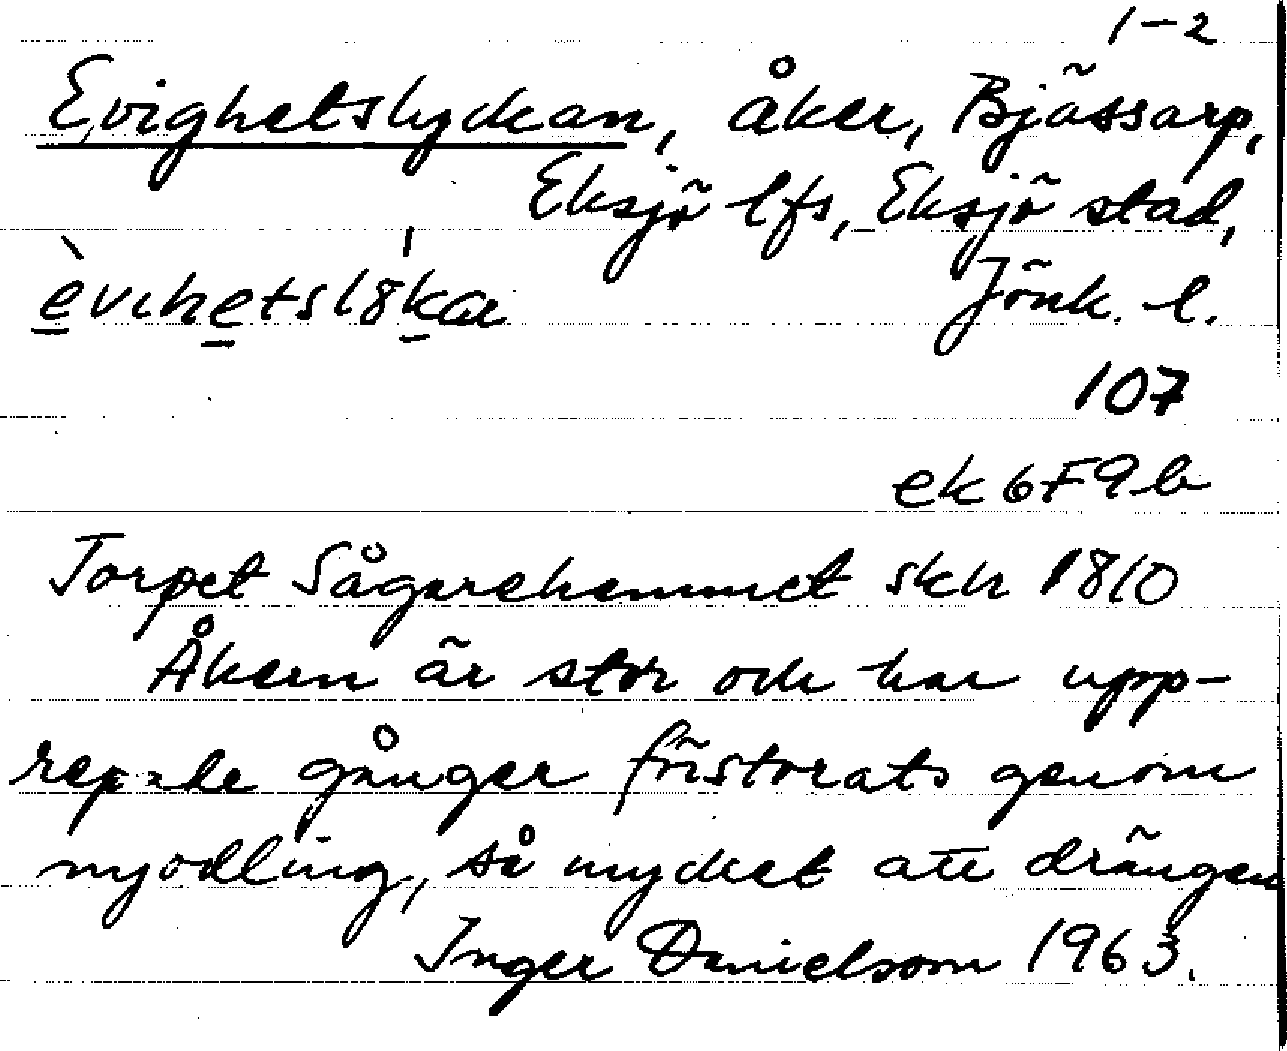 1-2
Evighetslyckan, åker, Bjässarp,
Eksjö lfs, Eksjö stad,
èvıhetsl8ka Jönk. l.
107
ek 6F9b
Torpet Sågarehemmet skh 1810
Åkern är stor och har upp-
repade gånger förstorats genom
nyodling, så mycket att drängen
Inger Danielsom 1963.